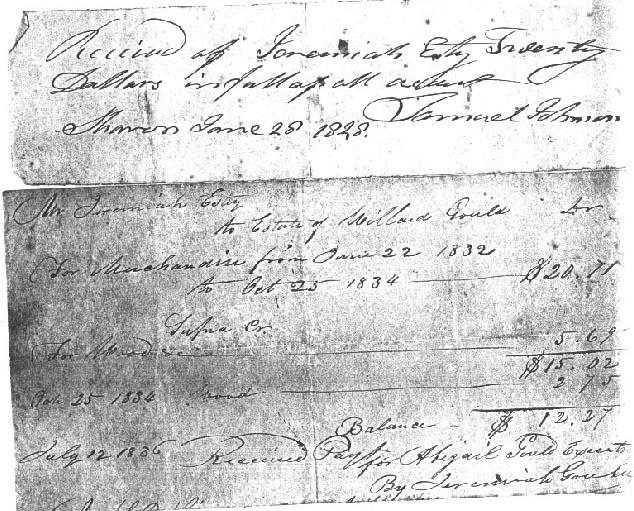 Received of Jeremiah Esty Twenty
Dollars in full of all
Sharon June 28 1828. Samuel Johnson
Mr Jeremiah Esty
to Estate of Willard Gould Dr
For Merchandise from June 22 1832
to Oct 25 1834 $20.71
Supra Cr.
For 5.69
$15.02
Oct 25 1834 2 75
Balance $12.27
July 12 1836 Received Pay for Abigail Gould
By Jeremiah